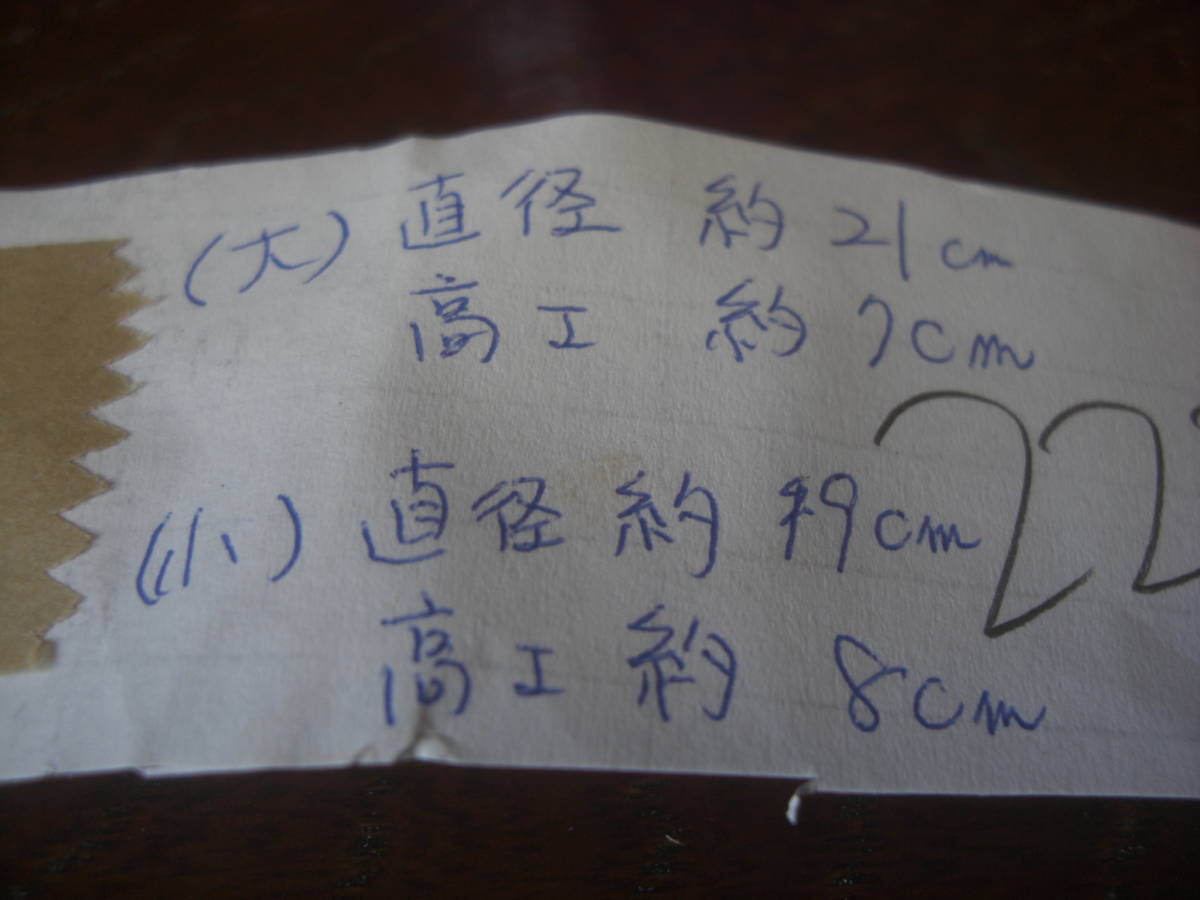 (大) 直径 約 21cm
高エ 約 7cm
(小) 直径 約 19cm
高エ 約 8cm